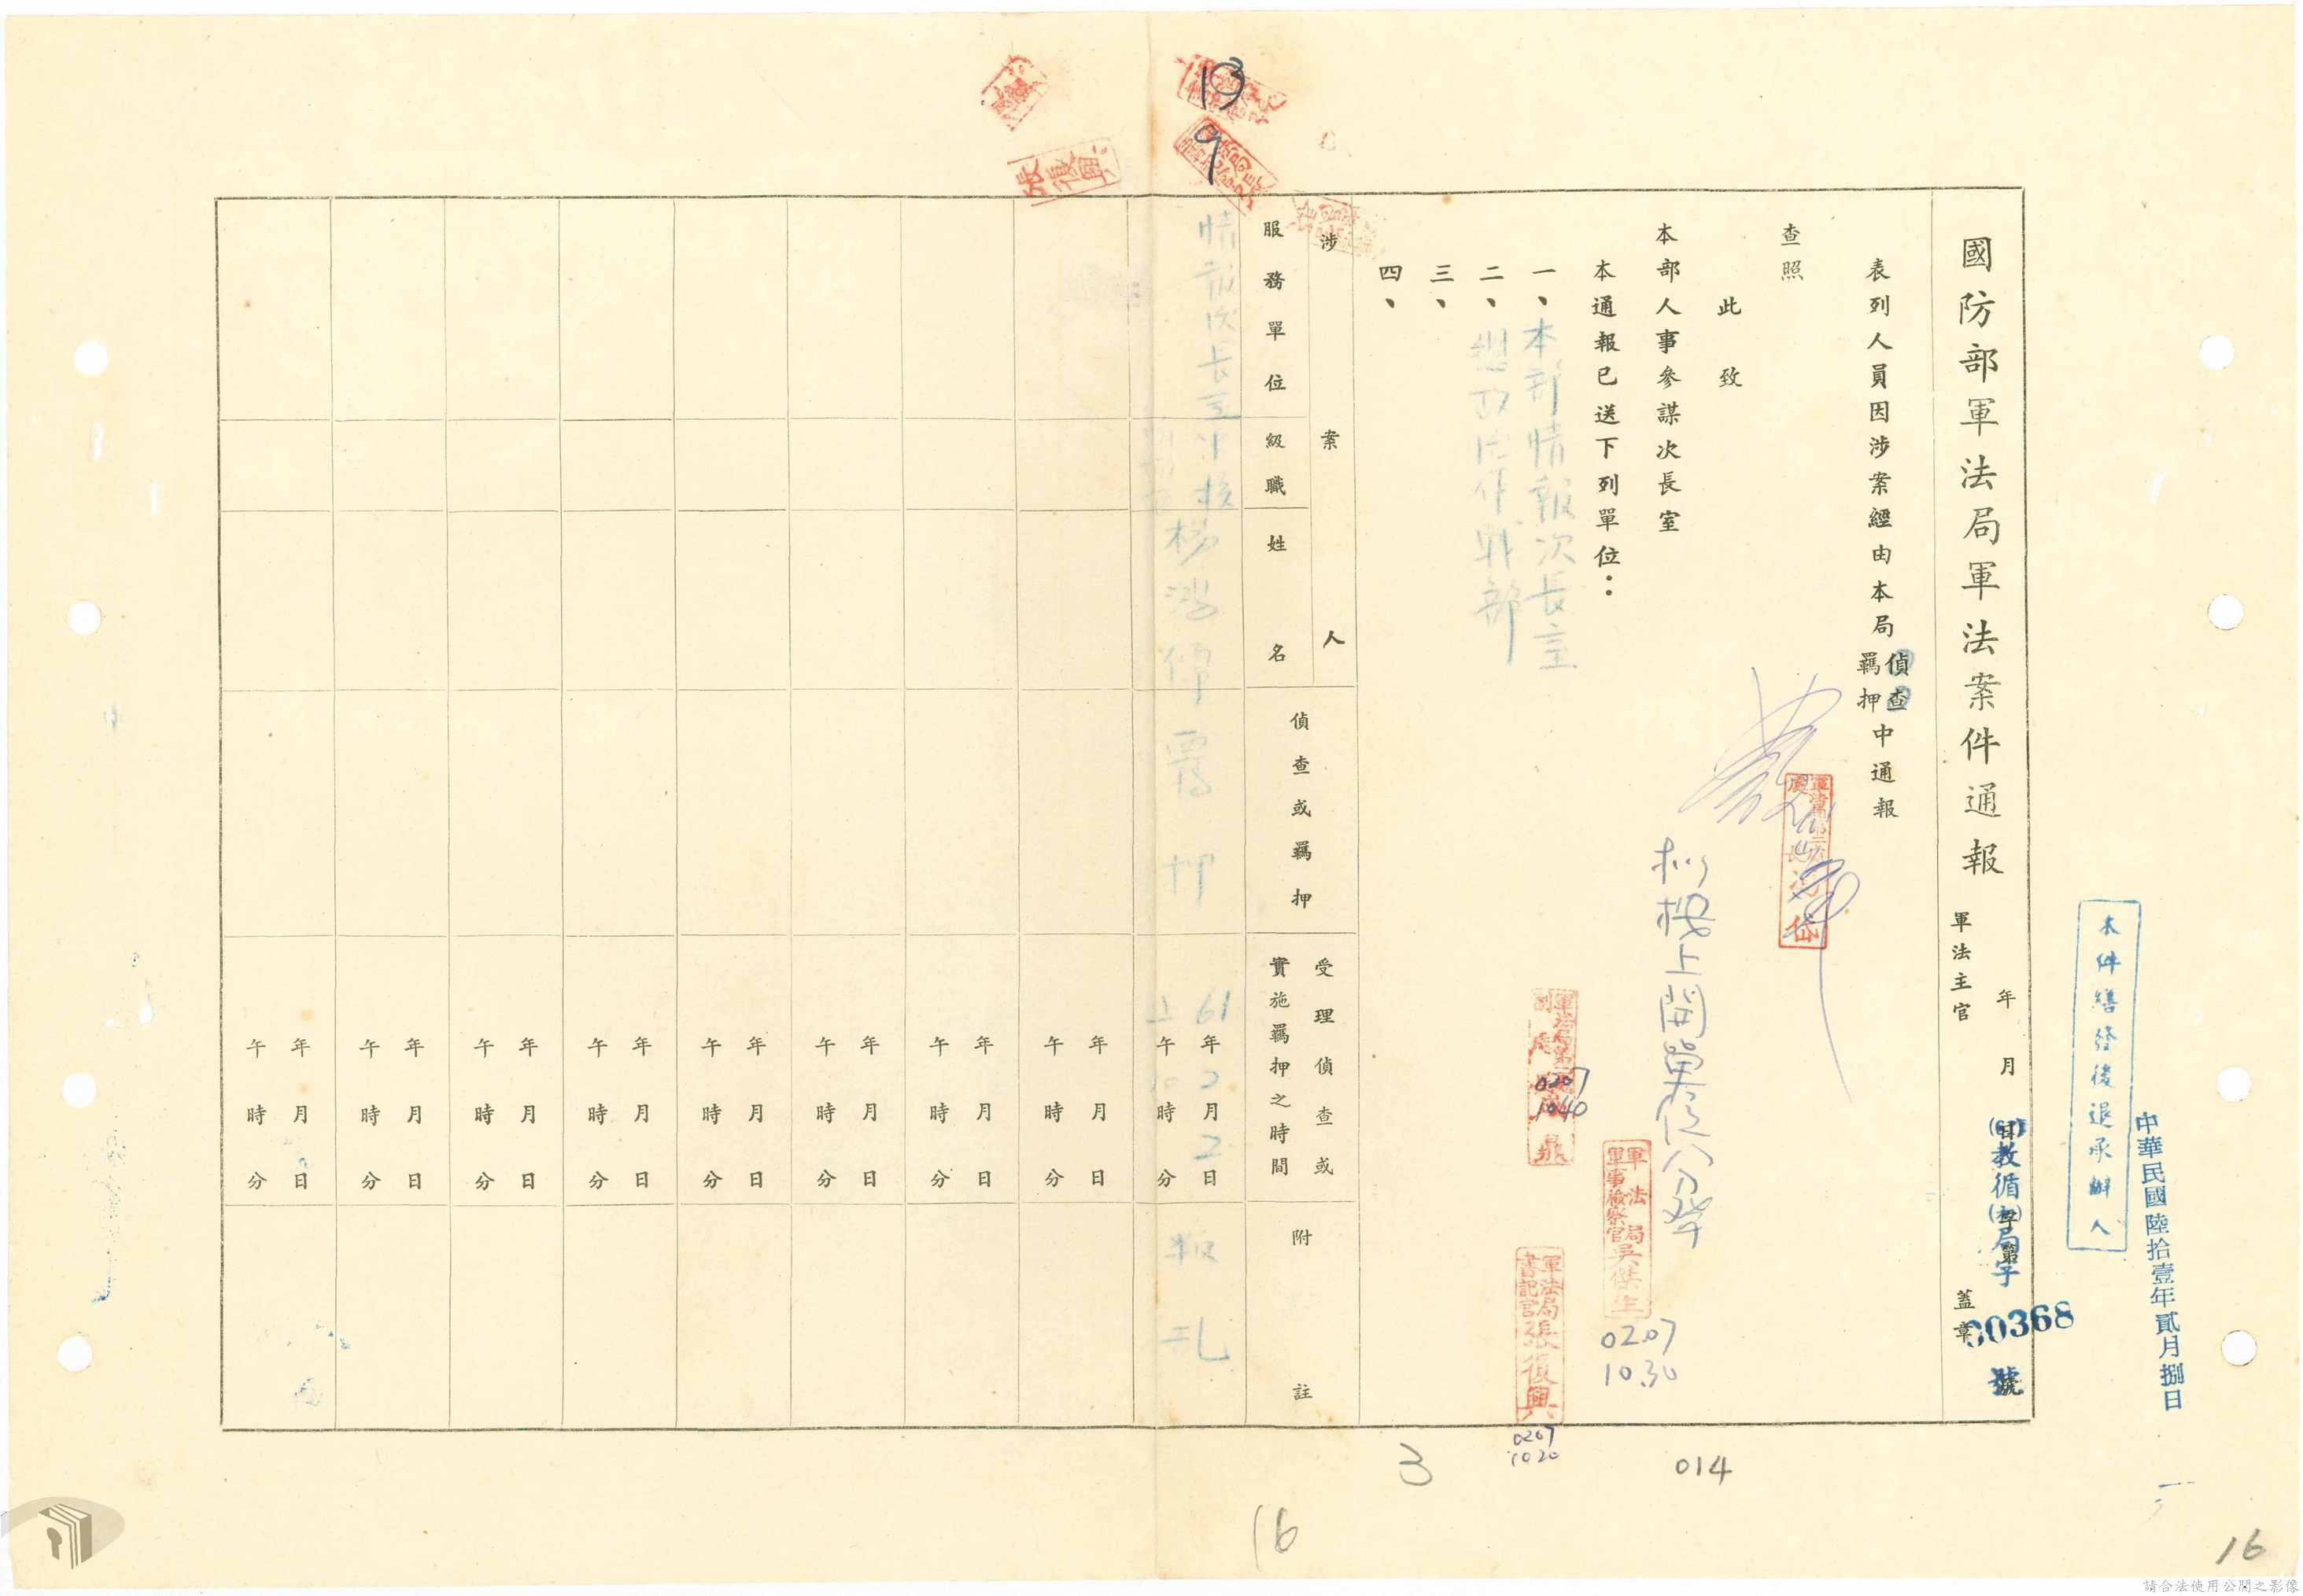 中華民國陸拾壹年貳月捌日
本件繕發後退承辦人
國防部軍法局軍法案件通報
年 月 日 字第 號
(61)教循(和)局字
00368
號
軍法主官 蓋章
表列人員因涉案經由本局偵查羈押中通報
查照
此致
本部人事參謀次長室
本通報已送下列單位：
一、本部情報次長室
二、總政治作戰部
三、
四、
擬按上開單位分發
軍法局
軍事檢察官吳傑生
0207
10.30
0207
1040
軍法局
書記官張復興
0207
1020
涉案人
服務單位
級職
姓名
偵查或羈押
受理偵查或
實施羈押之時間
附註
情報次長室
中校
羈押
61年2月2日
上午10時 分
叛亂
年月日
午時分
年月日
午時分
年月日
午時分
年月日
午時分
年月日
午時分
年月日
午時分
年月日
午時分
年月日
午時分
張復興
13
9
3
014
16
16
請合法使用公開之影像